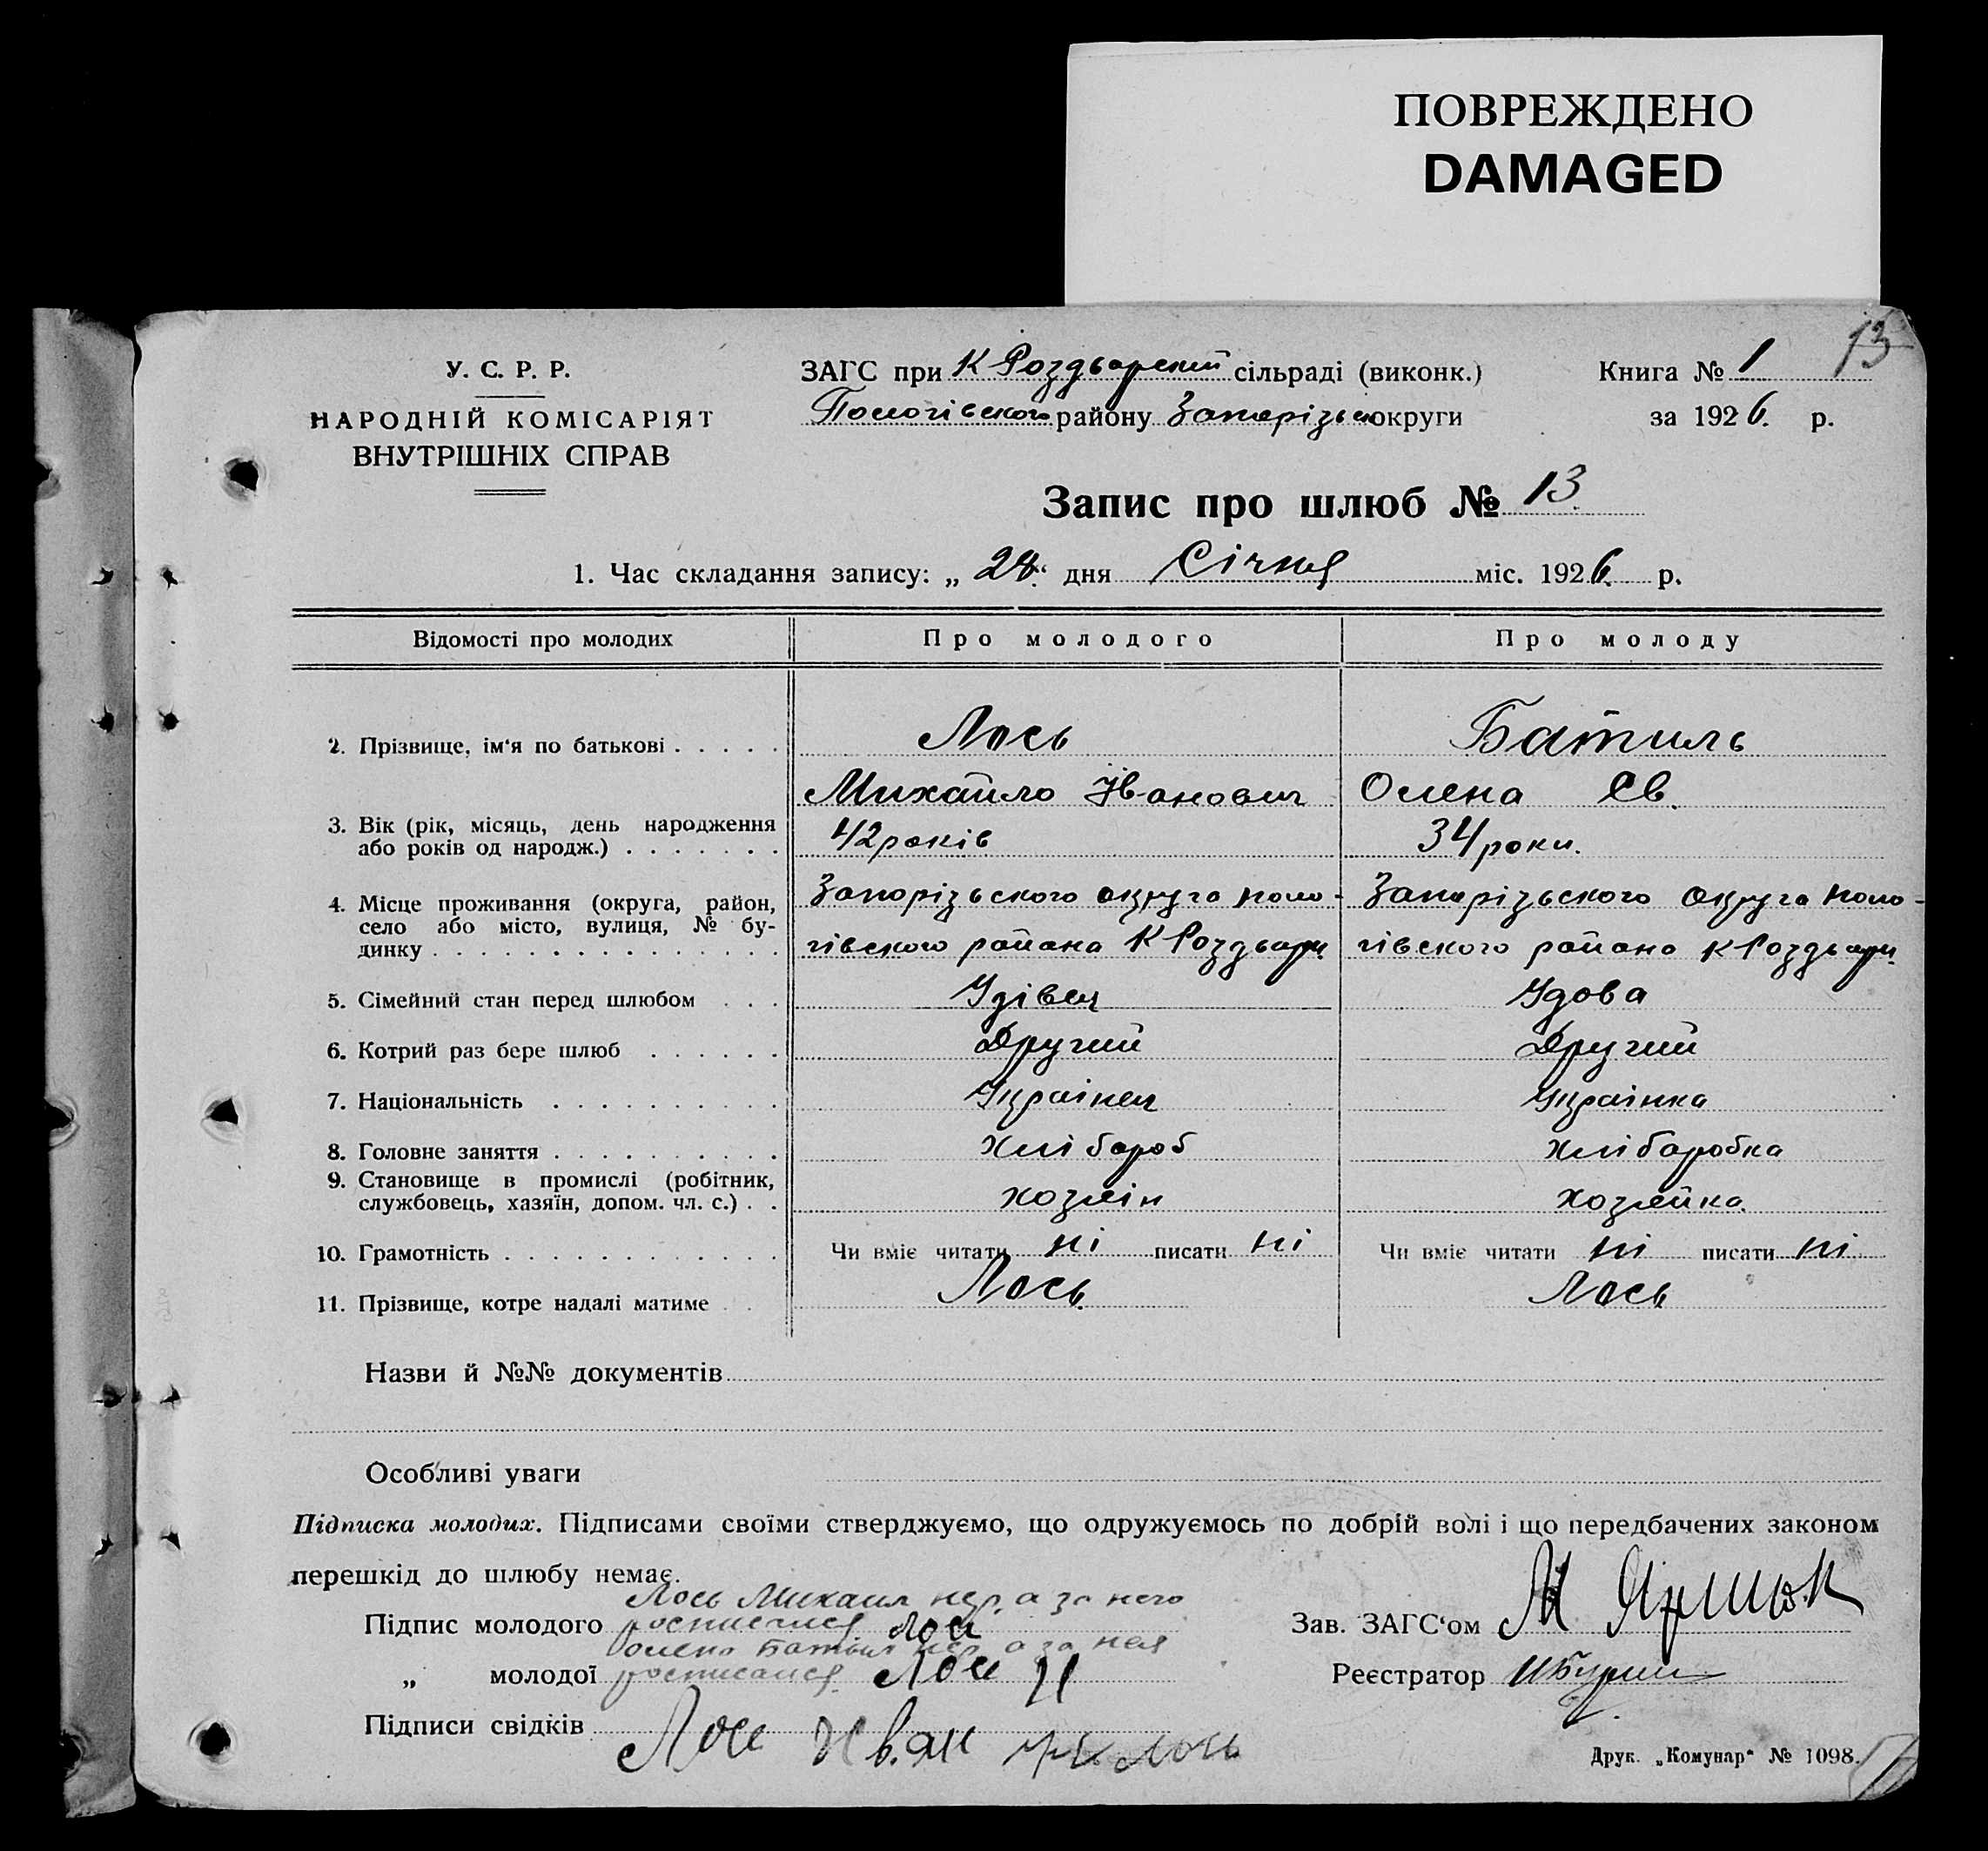 ПОВРЕЖДЕНО
DAMAGED
13
У. С. Р. Р.
НАРОДНІЙ КОМІСАРІЯТ
ВНУТРІШНІХ СПРАВ
ЗАГС при К Роздорский сільраді (виконк.)
Пологівского району Запорізько округи
Книга № 1
за 1926. р.
Запис про шлюб № 13.
1. Час складання запису: „28“ дня Січня міс. 1926. р.
Відомості про молодих Про молодого Про молоду
2. Прізвище, ім‘я по батькові Лось Батиль
Михайло Іванович Олена Єв.
3. Вік (рік, місяць, день народження
або років од народж.) 42 років 34 роки.
4. Місце проживання (округа, район, Запорізьского округа Поло- Запорізьского округа Поло-
село або місто, вулиця, № бу-
динку гівского района К Роздори гівского района К Роздори
5. Сімейний стан перед шлюбом Удівец Удова
6. Котрий раз бере шлюб Другий Другий
7. Національність Українец Українка
8. Головне заняття Хлібароб Хлібаробка
9. Становище в промислі (робітник,
службовець, хазяїн, допом. чл. с.) хозяін хозяйка.
10. Грамотність Чи вміє читати ні писати ні Чи вміє читати ні писати ні
11. Прізвище, котре надалі матиме Лось Лось
Назви й №№ документів
Особливі уваги
Підписка молодих. Підписами своїми стверджуємо, що одружуємось по добрій волі і що передбачених законом
перешкід до шлюбу немає.
Лось Михаил нег. а за него
Підпис молодого росписался Лос
олена Батыл нег. а за нея
„ молодої росписался Лос И
Підписи свідків Лос Иван Лось
Зав. ЗАГС‘ом М
Реєстратор
Друк. „Комунар“ № 1098.